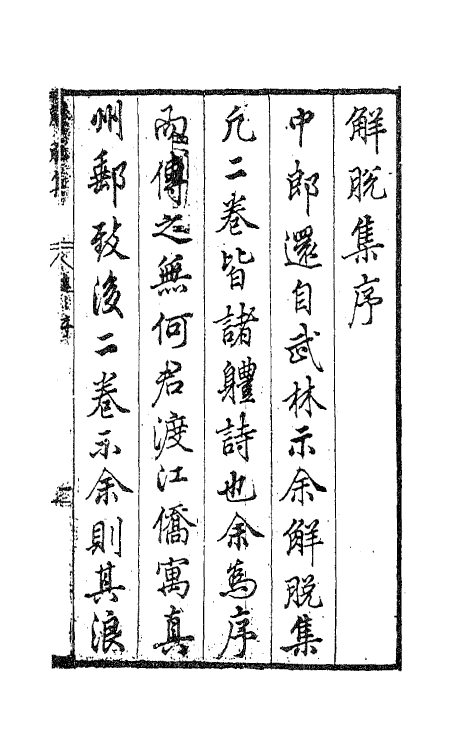 解脫集序
中郎還自武林示余解脫集
凢二卷皆諸軆詩也余為序
而傳之無何君渡江僑寓真
州郵致後二卷示余則其浪